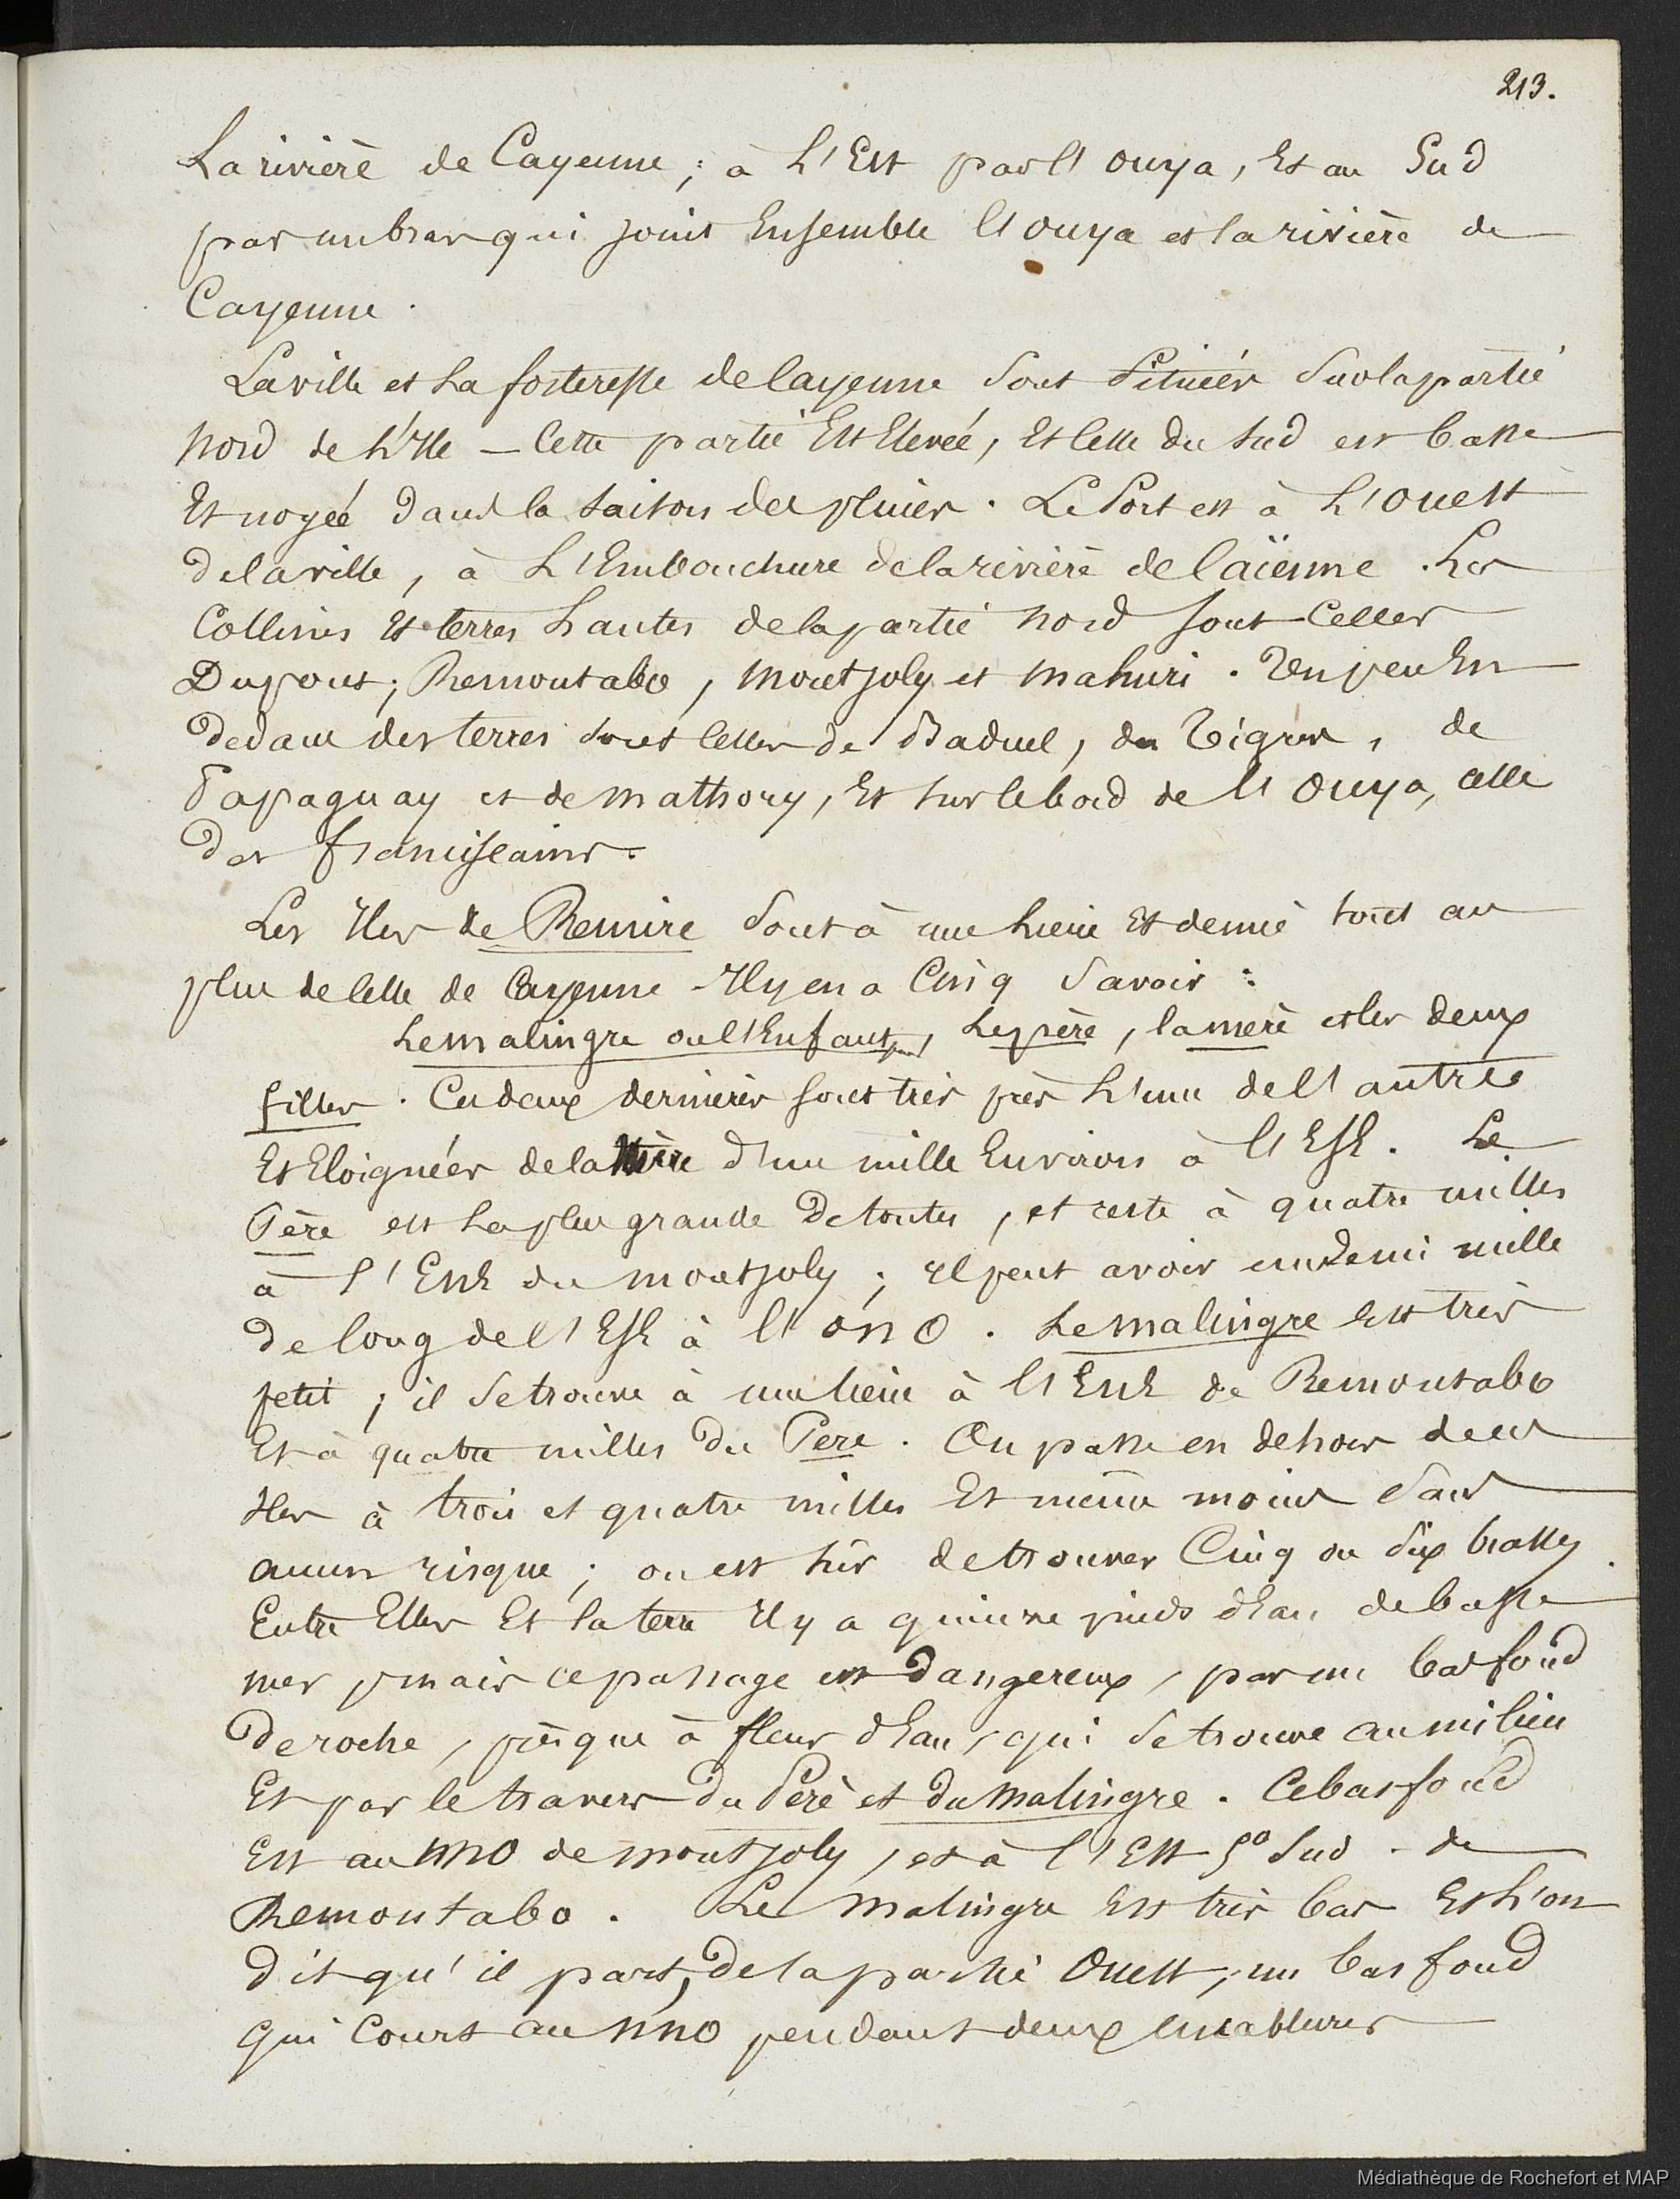 213.
La rivière de Cayenne; à L'Est par l'ouya, Et au Sud
par un bras qui joint Ensemble l'ouya et la rivière de
Cayenne.
La ville et La forteresse de Cayenne sont Situées sur la partie
Nord de L'Ile — Cette partie Est Elevée, Et Celle du Sud est basse
Et noyée dans la Saison des pluies. Le Port est à L'Ouest
de la ville, à L'Embouchure de la rivière de Caïenne. Les
Collines Et terres hautes de la partie Nord sont Celles
Du pont; Remontabo, Montjoly et Mahuri. Un peu En
dedans des terres sont Celles de Baduel, du Tigre, de
Papaguay et de Mathoury, Et sur le bord de l'Ouya, celle
des franciscains.
Les Iles de Remire sont à une lieue Et demie tout au
plus de Celle de Cayenne - Il y en a Cinq Savoir :
Le malingre ou l'Enfant, Le père, la mère et les deux
filles. Ces deux dernières sont très près L'une de l'autre
Et Eloignées de la Mère d'un mille Environ à l'ESE. Le
Père est La plus grande de toutes, et reste à quatre milles
à l'ENE du Montjoly; Il peut avoir un demi mille
de long de l'ESE à l'ONO. Le malingre Est très
petit; il se trouve à une lieue à l'ENE de Remontabo
Et à quatre milles du Père. On passe en dehors de ces
Iles à trois et quatre milles Et même moins sans
aucun risque; on est sûr de trouver Cinq ou six brasses.
Entre Elles Et la terre Il y a quinze pieds d'Eau de basse
mer, mais ce passage est dangereux, par un bas fond
de roche, presque à fleur d'Eau, qui se trouve au milieu
Et par le travers du Père et du Malingre. Ce bas fond
Est au NNO de Montjoly, et à l'Est 5° Sud - de
Remontabo. Le Malingre Est très bas Et L'on
dit qu'il part, de la partie Ouest, un bas fond
qui Court au NNO pendant deux encablures
Médiathèque de Rochefort et MAP